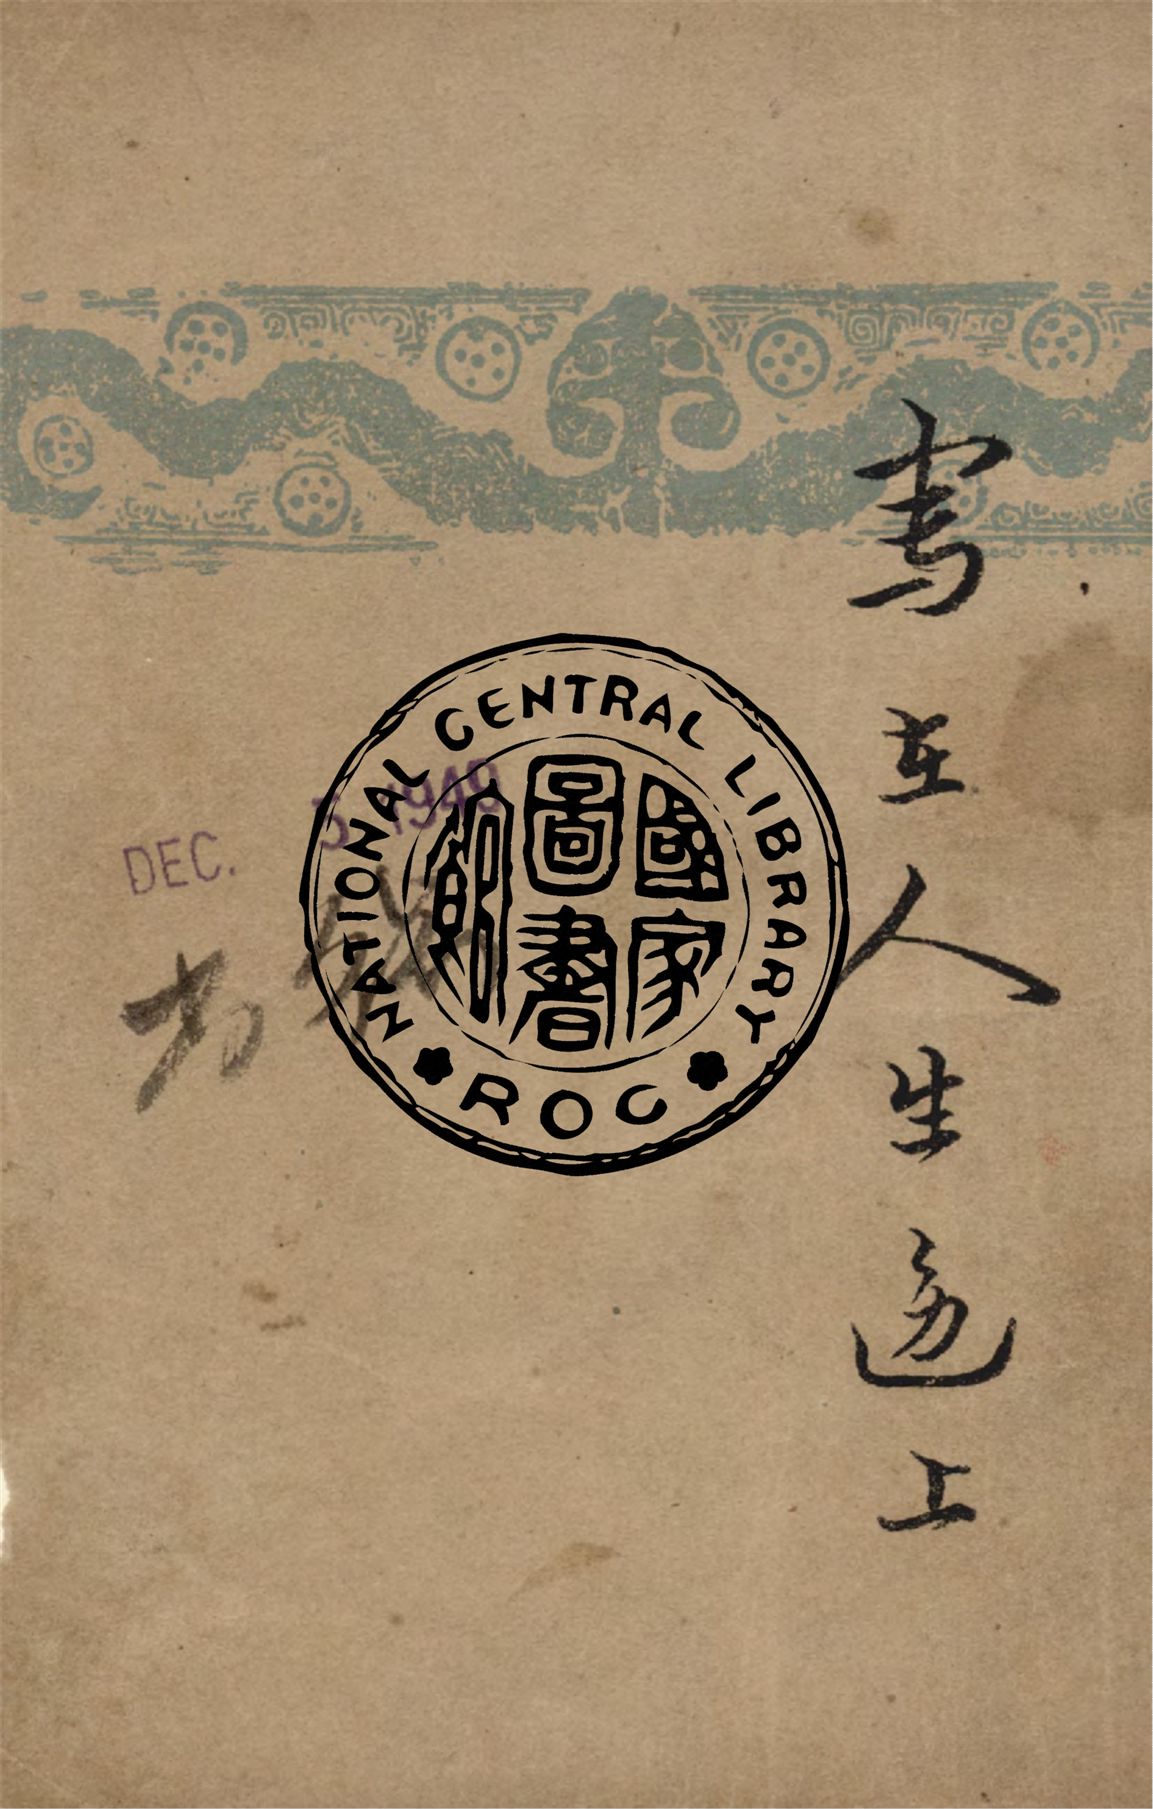 写在人生邊上
DEC. 5 1949
NATIONAL CENTRAL LIBRARY
國家
圖書
館
ROC